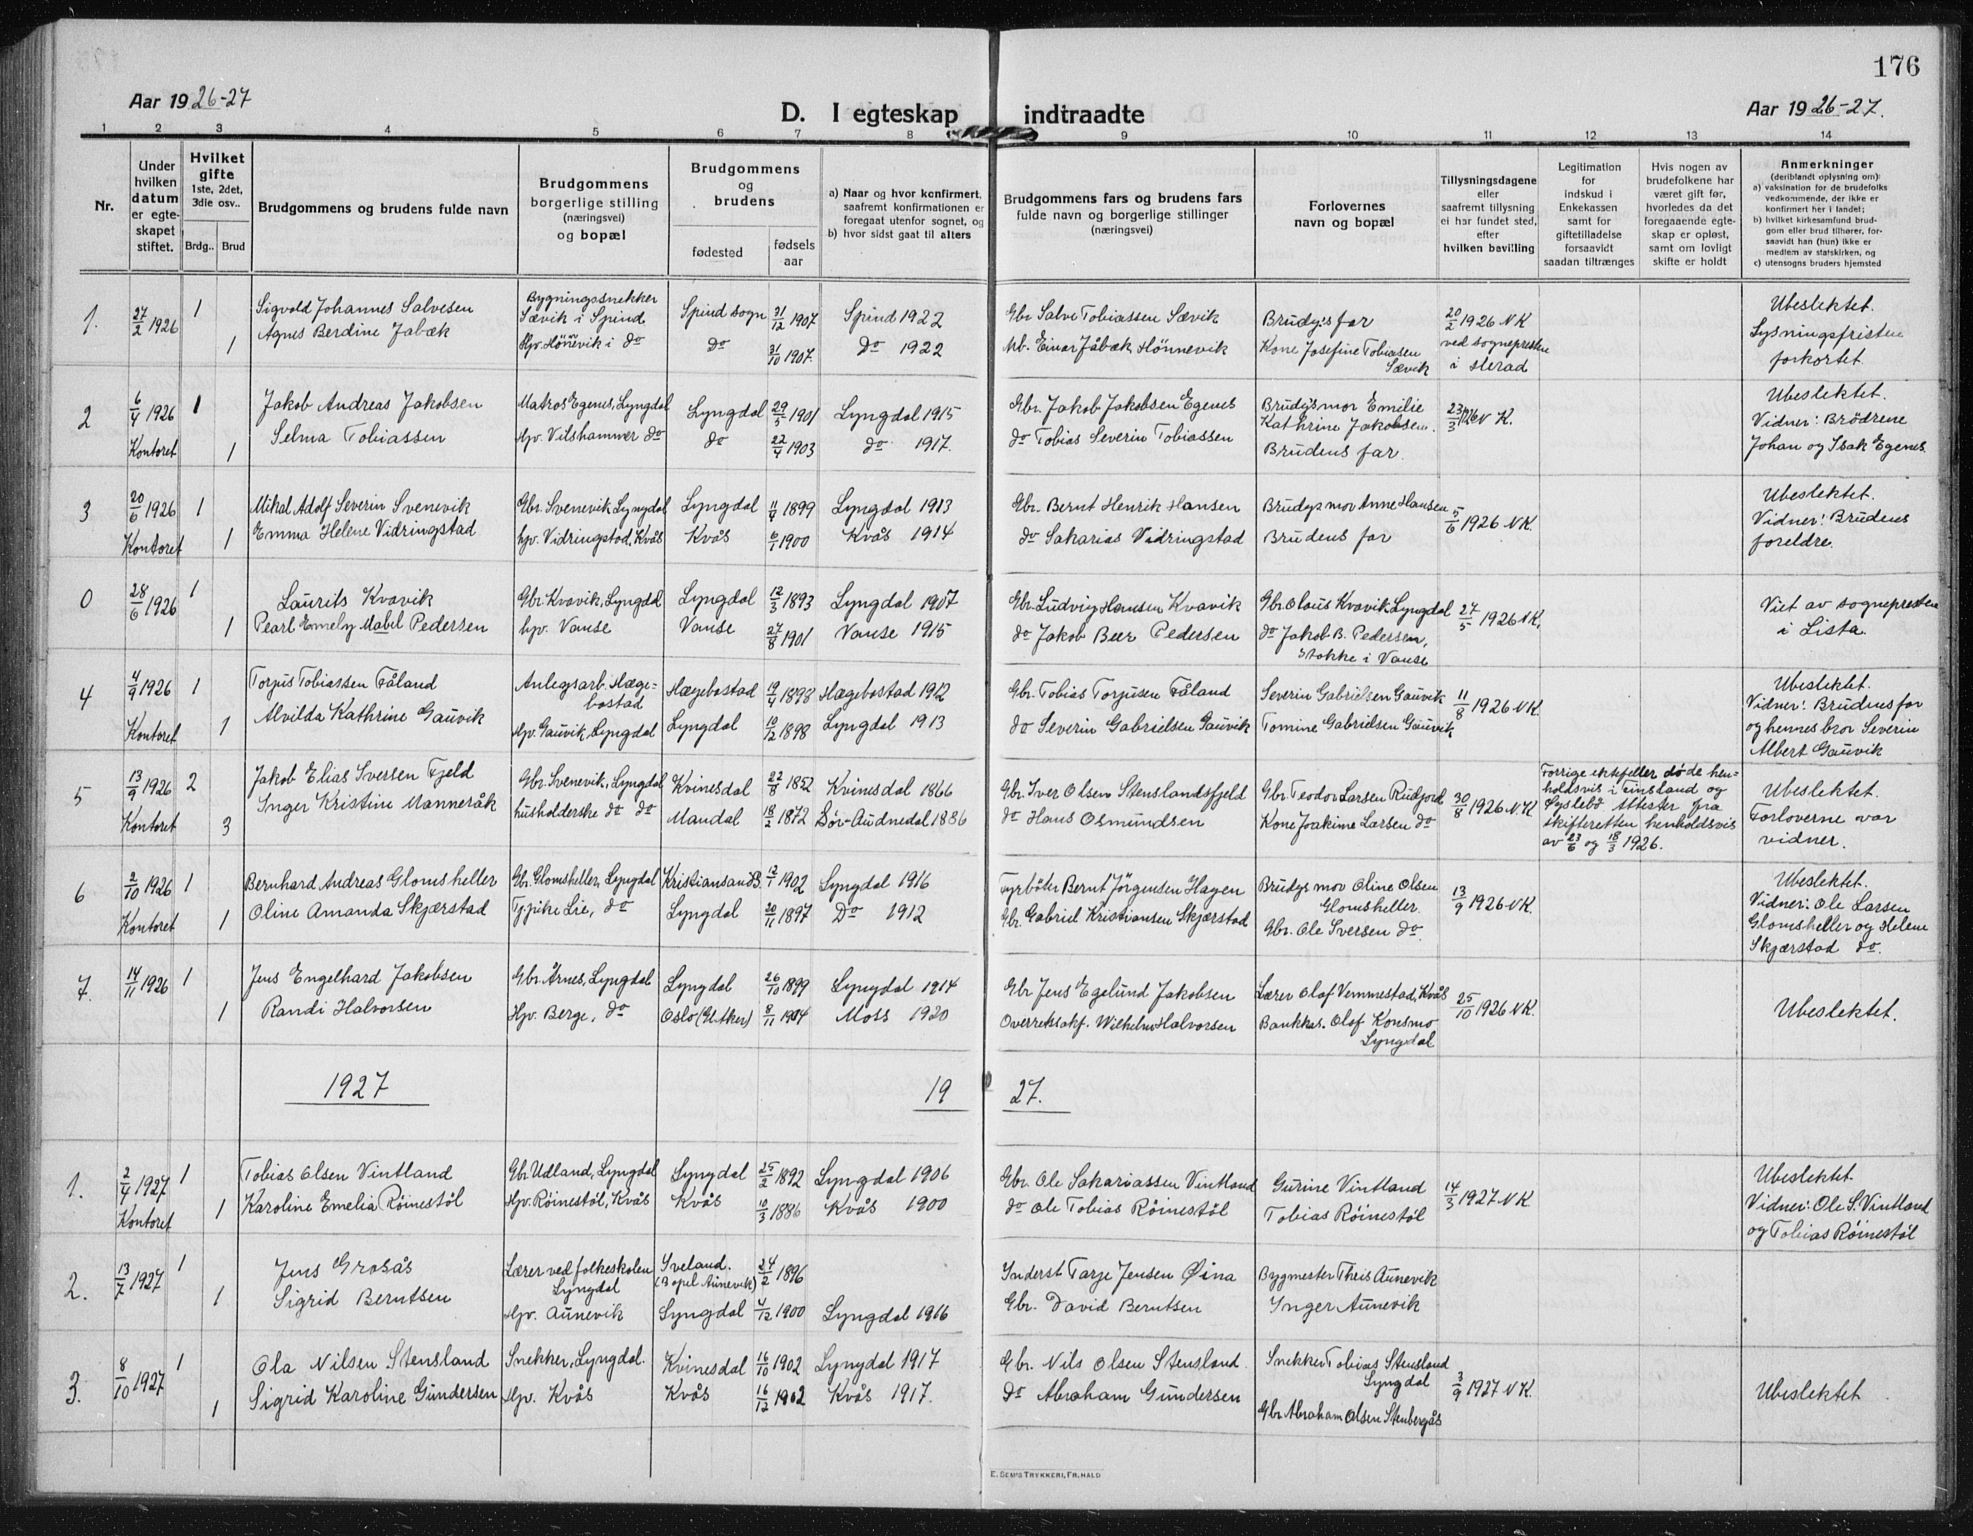 176
Aar 1926-27
D. I egteskap indtraadte
Aar 1926-27.
1 2 3 4 5 6 7 8 9 10 11 12 13 14
Nr.
Under
hvilken
datum
er egte-
skapet
stiftet.
Hvilket
gifte
1ste, 2det,
3die osv..
Brdg.. Brud
Brudgommens og brudens fulde navn
Brudgommens
borgerlige stilling
(næringsvei)
og bopæl
Brudgommens
og
brudens
fødested
fødsels
aar
a) Naar og hvor konfirmert,
saafremt konfirmationen er
foregaat utenfor sognet, og
b) hvor sidst gaat til alters
Brudgommens fars og brudens fars
fulde navn og borgerlige stillinger
(næringsvei)
Forlovernes
navn og bopæl
Tillysningsdagene
eller
saafremt tillysning
ei har fundet sted,
efter
hvilken bavilling
Legitimation
for
indskud i
Enkekassen
samt for
giftetilladelse
forsaavidt
saadan tiltrænges
Hvis nogen av
brudefolkene har
været gift før,
hvorledes da det
foregaaende egte-
skap er opløst,
samt om lovligt
skifte er holdt
Anmerkninger
(deriblandt oplysning om):
a) vaksination for de brudefolks
vedkommende, der ikke er
konfirmert her i landet;
b) hvilket kirkesamfund brud-
gom eller brud tilhører, for-
saavidt han (hun) ikke er
medlem av statskirken, og
c) utensogns bruders hjemsted
1. 27/2 1926 1 Sigvald Johannes Salvesen Bygningssnekker Sævik i Spind Spind sogn 31/12 1907 Spind 1922 Gbr Salve Tobiassen Sævik Brudg's far 20/2 1926 NK Ubeslektet.
1 Agnes Berdine Jåbæk Hjv. Hønnevik i do do 31/10 1907. Do 1922 Mb. Einar Jåbæk, Hønnevik Kone Josefine Tobiassen Sævik ved sognepresten i Herad Lysningsfristen forkortet.
2 6/4 1926 1 Jakob Andreas Jakobsen Matros Egenes, Lyngdal Lyngdal 29/5 1901 Lyngdal 1915 Gbr. Jakob Jakobsen Egenes Brudg's mor Emilie Kathrine Jakobsen. 23/3 1926 N K. Ubeslektet.
Kontoret 1 Selma Tobiassen Hjv. Vilshammer do do 22/4 1903 do 1917. do Tobias Severin Tobiassen Brudens far. Vidner: Brødrene Johan og Isak Egenes.
3 20/6 1926 1 Mikal Adolf Severin Svenevik Gbr. Svenevik, Lyngdal Lyngdal 11/9 1899 Lyngdal 1913 Gbr. Bernt Henrik Hansen Brudgs mor Anne Hansen 5/6 1926 NK. Ubeslektet.
Kontoret 1 Emma Helene Vidringstad hjv. Vidringstad, Kvås Kvås 6/1 1900 Kvås 1914 do Sakarias Vidringstad Brudens far Vidner: Brudens foreldre.
0 28/6 1926 1 Laurits Kvavik Gbr. Kvavik, Lyngdal Lyngdal 12/3 1893 Lyngdal 1907 Gbr. Ludvig Hansen Kvavik Gbr. Olaus Kvavik, Lyngdal 27/5 1926 NK. Viet av sognepresten
1 Pearl Emely Mabel Pedersen hjv. Vanse Vanse 27/8 1901 Vanse 1915 do Jakob Beer Pedersen do Jakob B. Pedersen, Stokke i Vanse i Lista.
4 4/9 1926 1 Torjus Tobiassen Fåland Anlegsarb. Hæge-bostad Hægebostad 19/4 1898 Hægebostad 1912 Gbr. Tobias Torjusen Fåland Severin Gabrielsen Gauvik 11/8 1926 NK. Ubeslektet.
Kontoret 1 Alvilda Kathrine Gauvik Hjv. Gauvik, Lyngdal Lyngdal 10/12 1898 Lyngdal 1913 do Severin Gabrielsen Gauvik Tomine Gabrielsen Gauvik Vidner: Brudens far og hennes bror Severin Albert Gauvik
5 13/9 1926 2 Jakob Elias Iversen Fjeld Gbr. Svenevik, Lyngdal Kvinesdal 22/8 1852 Kvinesdal 1866 Gbr. Iver Olsen Stenslandsfjeld Gbr. Teodor Larsen Rudjord 30/8 1926 N.K. Forrige ektefeller døde hen-holdsvis i Finsland og Øyslebø Attester fra skifteretten henholdsvis av 23/6 og 18/3 1926. Ubeslektet.
Kontoret 3 Inger Kristine Manneråk husholderske do do Mandal 18/2 1872 Sør-Audnedal 1886 do Hans Osmundsen Kone Joakime Larsen do Forloverne var vidner.
6 2/10 1926 1 Bernhard Andreas Glomsheller Gbr. Glomsheller, Lyngdal Kristiansand S. 12/1 1902 Lyngdal 1916 Fyrbøter Bernt Jørgensen Hagen Brudgs mor Oline Olsen Glomsheller. 13/9 1926 NK. Ubeslektet.
Kontoret 1 Oline Amanda Skjærstad Tjpike Lie, do Lyngdal 20/11 1897 Do 1912 Gbr. Gabriel Kristiansen Skjærstad Gbr. Ole Iversen do. Vidner: Ole Larsen Glomsheller og Helene Skjærstad do.
7. 14/11 1926 1 Jens Engelhard Jakobsen Gbr. Årnes, Lyngdal Lyngdal 26/10 1899 Lyngdal 1914 Gbr Jens Egelund Jakobsen Lærer Olaf Vemmestad, Kvås 25/10 1926 NK.
1 Randi Halvorsen Hjv. Berge, do Oslo (Gl. Aker) 8/11 1904 Moss 1920 Overretssakf. Wilhelm Halvorsen Bankkas. Olaf Konsmo Lyngdal Ubeslektet.
1927 19 27.
1. 2/4 1927 1 Tobias Olsen Vintland Gbr. Udland, Lyngdal Lyngdal 25/2 1892 Lyngdal 1906 Gbr. Ole Sakariassen Vintland Gurine Vintland 14/3 1927 NK Ubeslektet.
Kontoret 1 Karoline Emelia Røinestøl Hjv. Røinestøl, Kvås Kvås 10/3 1886 Kvås 1900 do Ole Tobias Røinestøl Tobias Røinestøl Vidner: Ole S. Vintland og Tobias Røinestøl
2. 13/7 1927 1 Jens Grosås Lærer ved folkeskolen Lyngdal Iveland. (Bopel Aunevik) 24/2 1896 Inderst Tarje Jensen Øina Bygmester Theis Aunevik
1 Sigrid Berntsen Hjv. Aunevik Lyngdal 4/12 1900 Lyngdal 1916 Gbr. David Berntsen Inger Aunevik
3. 8/10 1927 1 Ola Nilsen Stensland Snekker, Lyngdal. Kvinesdal 16/10 1902 Lyngdal 1917 Gbr. Nils Olsen Stensland Snekker Tobias Stensland Lyngdal 3/9 1927 NK.
1 Sigrid Karoline Gundersen Hjv. Kvås Kvås 16/12 1902 Kvås 1917. do Abraham Gundersen Gbr Abraham Olsen Stenbergås Ubeslektet
E. SEM'S TRYKKERI, FR.HALD